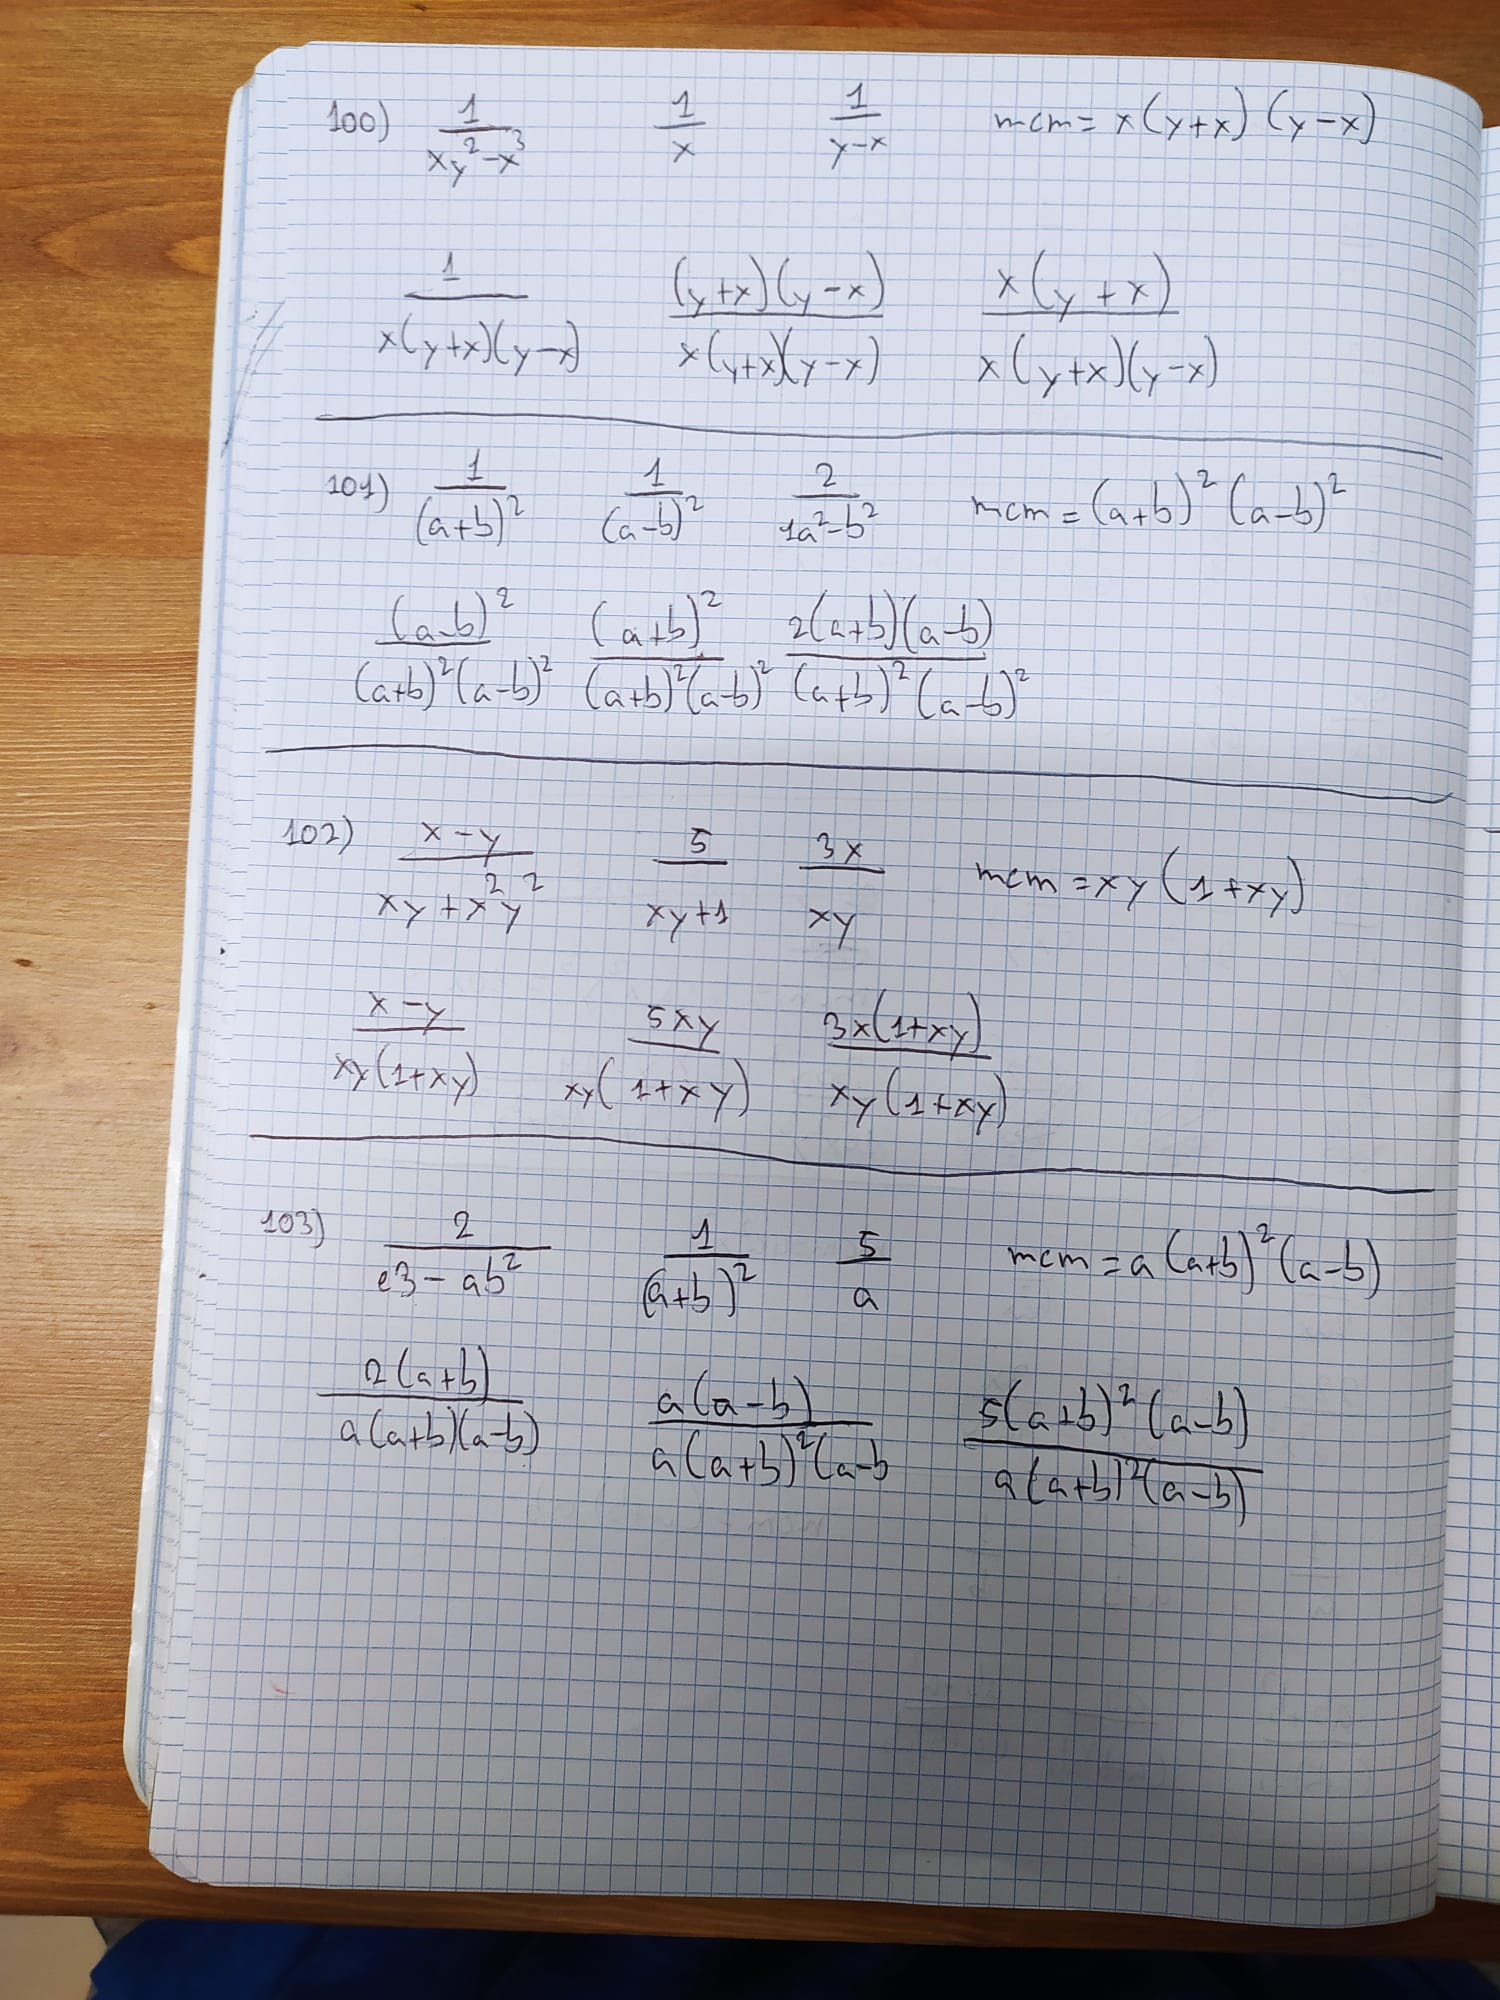 100) 1/(xy²-x³) 1/x 1/(y-x) mcm = x(y+x)(y-x)
1/(x(y+x)(y-x)) (y+x)(y-x)/(x(y+x)(y-x)) x(y+x)/(x(y+x)(y-x))
101) 1/(a+b)² 1/(a-b)² 2/(1a²-b²) mcm = (a+b)²(a-b)²
(a-b)²/((a+b)²(a-b)²) (a+b)²/((a+b)²(a-b)²) 2(a+b)(a-b)/((a+b)²(a-b)²)
102) (x-y)/(xy+x²y²) 5/(xy+1) 3x/(xy) mcm = xy(1+xy)
(x-y)/(xy(1+xy)) 5xy/(xy(1+xy)) 3x(1+xy)/(xy(1+xy))
103) 2/(e3-ab²) 1/(a+b)² 5/a mcm = a(a+b)²(a-b)
2(a+b)/(a(a+b)(a-b)) a(a-b)/(a(a+b)²(a-b 5(a+b)²(a-b)/(a(a+b)²(a-b))